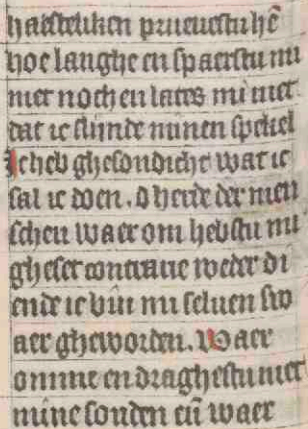 haesteliken prueuestu hē
hoe langhe en spaerstu mi
niet noch en lates mi niet
dat ic slinde minen spekel
Ic heb ghesondicht wat ic
sal ic doen. o herde der men
schen waer om hebstu mi
gheset contrarie weder di
ende ic bin mi seluen sw
aer gheworden. Waer
omme en draghestu niet
mine sonden eñ waer